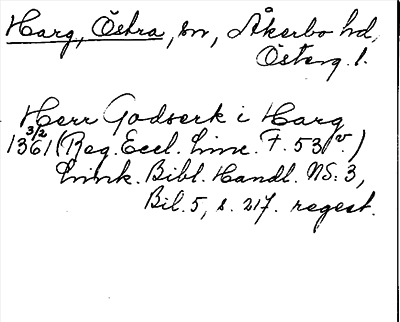 Harg, Östra, sn, Åkerbo hd,
Österg. l.
Herr Godserk i Harg
1361 3/2 (Reg. Eccl. Linc. F. 53 v.)
Linck. Bibl. Handl. NS: 3,
Bil. 5, s. 217. regest.